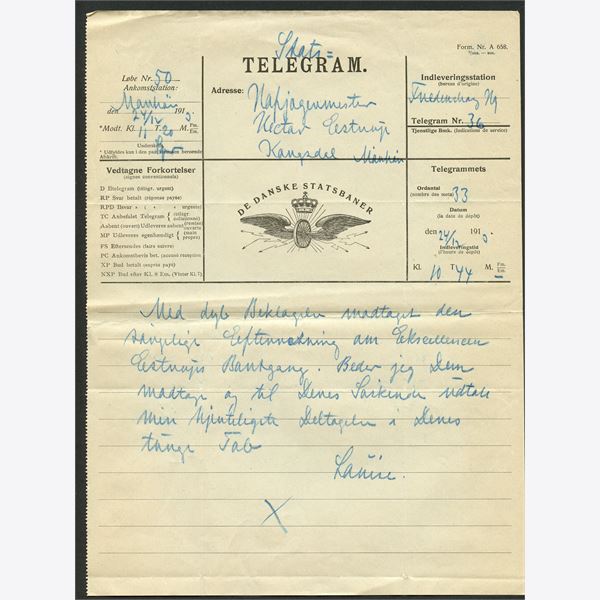 Stats=
Form. Nr. A 658.
TELEGRAM.
Løbe Nr. 50
Ankomststation:
den 24/12 1913
*Modt. Kl. 11 T. 20 M. Fm. Em.
Underskr.
* Udfyldes kun i den paa Adressen beroende Afskrift.
Adresse: Hofjægermester
Hector Estrup
Kongsdal
Indleveringsstation
(bureau d'origine)
Telegram Nr. 36
Tjenstlige Bem. (indications de service)
Vedtagne Forkortelser
(signes conventionnels)
D Iltelegram (télégr. urgent)
RP Svar betalt (réponse payée)
RPD Besvar (» urgente)
TC Anbefalet Telegram (télégr. collationné)
Aabent (ouvert) Udleveres aabent (remettre ouverte)
MP Udleveres egenhændigt (main propre)
FS Eftersendes (faire suivre)
PC Ankomstbevis bet. (accusé réception)
XP Bud betalt (exprès payé)
NXP Bud efter Kl. 8 Em. (Vinter Kl. 7).
DE DANSKE STATSBANER
Telegrammets
Ordantal
(nombre des mots) 33
Datum
(la date de dépôt)
den 24/12 191
Indleveringstid
(l'heure de dépôt)
Kl. 10 T. 44 M. Fm. Em.
Med dyb Beklagelse modtaget den
sørgelige Efterretning om Excellencen
Estrups Bortgang. Beder jeg Dem
modtage og til Deres Søskende udtale
min hjerteligste Deltagelse i Deres
tunge Tab
Louise.
X